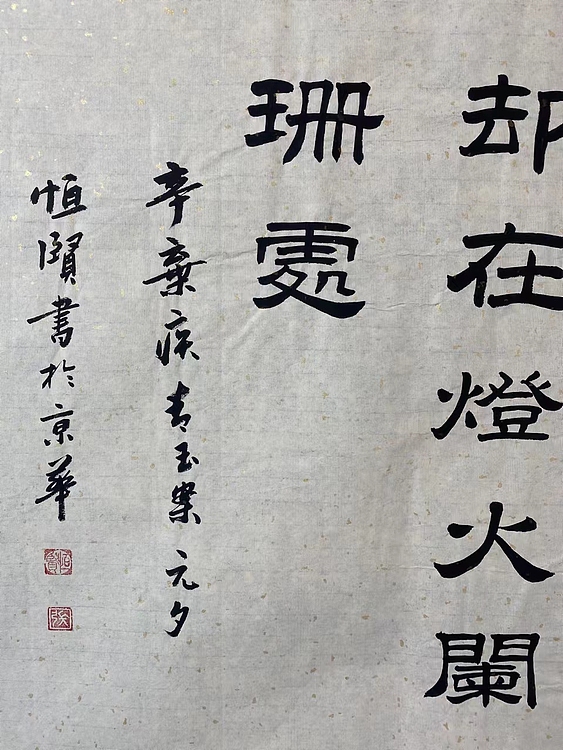 却在燈火闌
珊處
辛棄疾青玉案元夕
恒賢書於京華